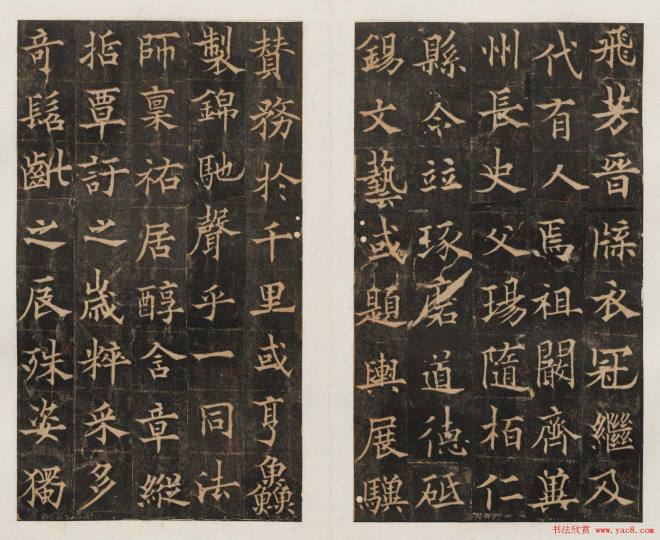 飛芳晉牒衣冠繼及
代有人焉祖闞齊兗
州長史父瑒隨柏仁
縣令竝琢磨道德砥
錫文藝或題輿展驥
賛務於千里或亨鱻
製錦馳聲乎一同法
師稟祐居醇含章縱
哲覃訏之歲粹采多
奇髫齔之辰殊姿獨
书法欣赏 www.yac8.com